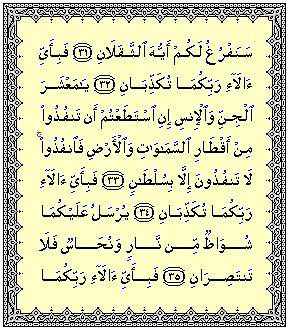 سَنَفْرُغُ لَكُمْ أَيُّهَ ٱلثَّقَلَانِ ﴿٣١﴾ فَبِأَىِّ
ءَالَآءِ رَبِّكُمَا تُكَذِّبَانِ ﴿٣٢﴾ يَـٰمَعْشَرَ
ٱلْجِنِّ وَٱلْإِنسِ إِنِ ٱسْتَطَعْتُمْ أَن تَنفُذُوا۟
مِنْ أَقْطَارِ ٱلسَّمَـٰوَٰتِ وَٱلْأَرْضِ فَٱنفُذُوا۟ ۚ
لَا تَنفُذُونَ إِلَّا بِسُلْطَـٰنٍ ﴿٣٣﴾ فَبِأَىِّ ءَالَآءِ
رَبِّكُمَا تُكَذِّبَانِ ﴿٣٤﴾ يُرْسَلُ عَلَيْكُمَا
شُوَاظٌ مِّن نَّارٍ وَنُحَاسٌ فَلَا
تَنتَصِرَانِ ﴿٣٥﴾ فَبِأَىِّ ءَالَآءِ رَبِّكُمَا